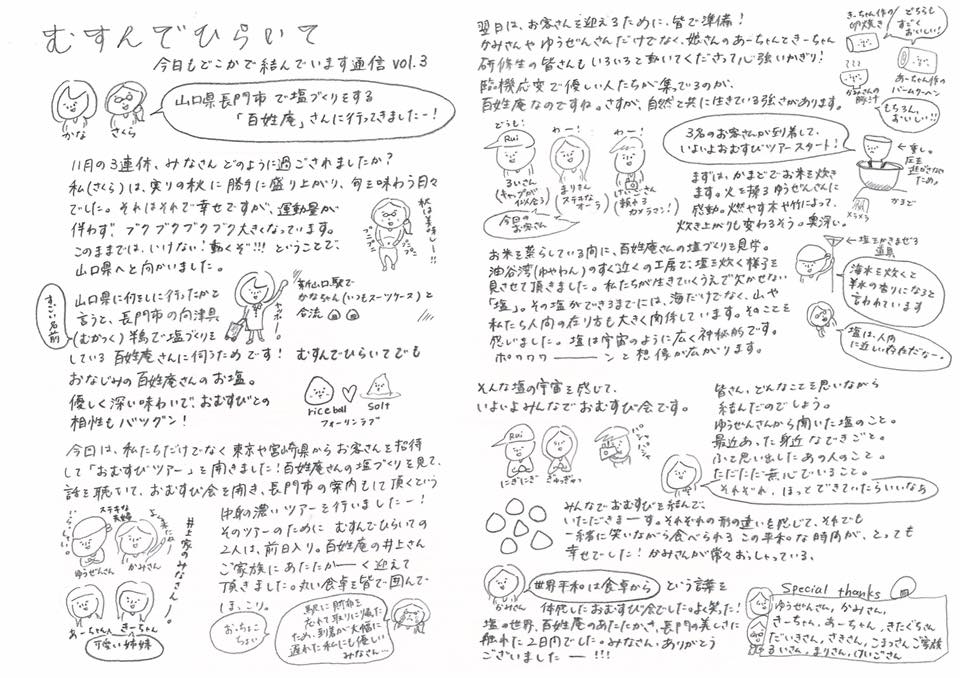 むすんでひらいて
今日もどこかで結んでいます通信 vol.3
かな
さくら
山口県長門市で塩づくりをする
「百姓庵」さんに行ってきましたー！
11月の3連休、みなさんどのように過ごされましたか？
私(さくら)は、実りの秋に勝手に盛り上がり、旬を味わう日々
でした。それはそれで幸せですが、運動量が
伴わず ブクブクブクブク大きくなっています。
このままでは、いけない！動くぞ!!! ということで、
山口県へと向かいました。
秋は美味しー!!
プニプニ
プニプニ
山口県に何をしに行ったかと
言うと、長門市の向津具
(むかつく)半島で塩づくりを
している 百姓庵さんに伺うためです！
すっごい名前
やっほー！
新山口駅で
かなちゃん(いつもスーツケース)と
合流
むすんでひらいてでも
おなじみの百姓庵さんのお塩。
優しく深い味わいで、おむすびとの
相性もバツグン！
riceball
Salt
フォーリンラブ
今回は、私たちだけでなく東京や宮崎県からお客さんを招待
して「おむすびツアー」を開きました！百姓庵さんの塩づくりを見て、
話を聴いて、おむすび会を開き、長門市の案内もして頂くという
中身の濃いツアーを行いましたー！
そのツアーのために むすんでひらいての
2人は、前日入り。百姓庵の井上さん
ご家族にあたたかーく迎えて
頂きました。丸い食卓を皆で囲んで
ほっこり。
ステキな夫婦
ゆうぜんさん
かみさん
井上家のみなさんー！
あーちゃん
きーちゃん
可愛い姉妹
おっちょこちょい
駅に財布を
忘れて取りに帰った
ため、到着が大幅に
遅れた私にも優しい
みなさん…
翌日は、お客さんを迎えるために、皆で準備！
かみさんやゆうぜんさんだけでなく、娘さんのあーちゃんときーちゃん
研修生の皆さんもいろいろと動いてくださって心強いかぎり！
臨機応変で優しい人たちが集っているのが、
百姓庵なのですね。さすが、自然と共に生きている強さがあります。
きーちゃん作の
卵焼き
どちらも
すごく
おいしい！
あーちゃん作の
バームクーヘン
かみさんの
豚汁
もちろん、
おいしい!!
どうも！
Rui
るいさん
(キャップが似合う)
わー！
まりさん
(ステキなオーラ)
わー！
けいごさん
(頼れるカメラマン！)
今日のお客さん
3名のお客さんが到着して、
いよいよおむすびツアースタート！
まずは、かまどでお米を炊き
ます。火を操るゆうぜんさんに
感動。燃やす木や竹によって、
炊き上がりも変わるそう。奥深い。
重し。
圧を
逃がさないため。
かまど
メラメラ
お米を蒸らしている間に、百姓庵さんの塩づくりを見学。
油谷湾(ゆやわん)のすぐ近くの工房で、塩を炊く様子を
見させて頂きました。私たちが生きていくうえで欠かせない
「塩」。その塩ができるまでには、海だけでなく、山や
私たち人間の在り方も大きく関係しています。そのことを
感じました。塩は宇宙のように広く神秘的です。
ポワワワーーーンと想像が広がります。
塩をかきまぜる
道具
海水を炊くと
羊水の香りになると
言われています
塩は、人間
に近い存在だなー。
そんな塩の宇宙を感じて、
いよいよみんなでおむすび会です。
Rui
にぎにぎ
ぎゅぎゅっ
パシャパシャ
皆さん、どんなことを思いながら
結んだのでしょう。
ゆうぜんさんから聞いた塩のこと。
最近あった身近なできごと。
ふと思い出したあの人のこと。
ただただ無心でいること。
それぞれ、ほっとできていたらいいなあ
みんなでおむすびを結んで、
いただきまーす。それぞれの形の違いを感じて、それでも
一緒に笑いながら食べられる この平和な時間が、とっても
幸せでした！かみさんが常々おっしゃっている、
かみさん
世界平和は食卓から
という言葉を
体感したおむすび会でした。よく笑った！
塩の世界、百姓庵のあたたかさ、長門の美しさに
触れた2日間でした。みなさん、ありがとう
ございましたー!!!
Special thanks
ゆうぜんさん、かみさん、
きーちゃん、あーちゃん、きたぐちさん
だいきさん、さきさん、こまっさんご家族
るいさん、まりさん、けいごさん